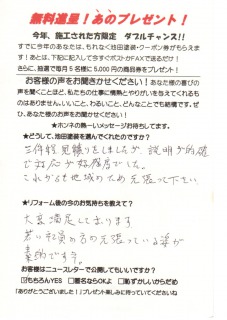 無料進呈！あのプレゼント！
今年、施工された方限定　ダブルチャンス!!
すでに今年のあなたは、もれなく池田塗装・クーポン券がもらえ
ます！あとは、下記に記入して今すぐポストかFAXで送るだけ！
さらに、抽選で毎月5名様に5,000円の商品券をプレゼント！
お客様の声をお聞きかせください！あなた様の喜びの
声を聞くことほど、私たちの仕事に情熱とやりがいを与えてくれるも
のはありません。いいこと、わるいこと、どんなことでも結構です。ぜ
ひ、あなた様のお声をお聞かせください！
★ホンネの熱~いメッセージお待ちしてます。
★どうして、池田塗装を選んでくれたのですか？
三件程見積りをしましたが、説明が的確
で対応が好感度でした。
これからも地域のため元張って下さい
★リフォーム後の今のお気持を教えて？
大変満足しております
若い社員の方の元張っている姿が
素的です。
お客様はニューズレターで公開してもいいですか？
☑もちろんYES　□匿名ならOKよ　□恥ずかしいからだめ
「ありがとうございました！」プレゼント楽しみに待っていてくださいね